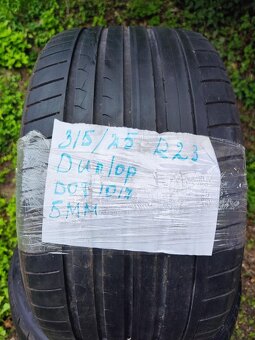 315/25 R23
Dunlop
DOT 1017
5MM